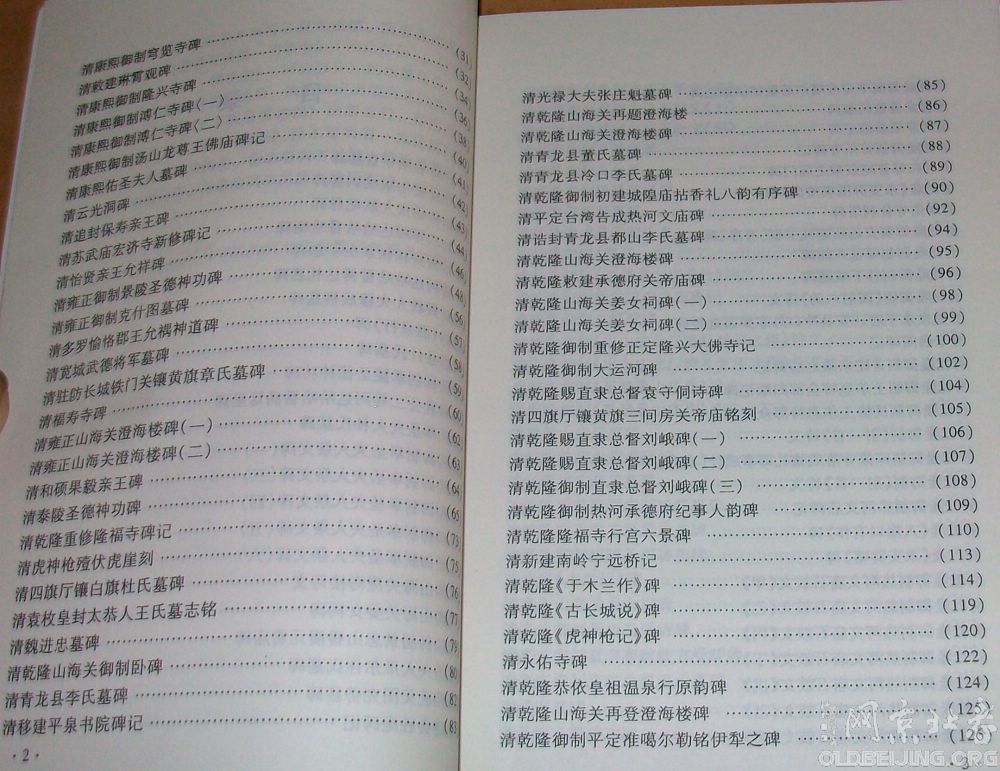 清康熙御制穹览寺碑 (31)
清敕建琳霄观碑 (32)
清康熙御制隆兴寺碑 (34)
清康熙御制溥仁寺碑(一) (36)
清康熙御制溥仁寺碑(二) (38)
清康熙御制汤山龙尊王佛庙碑记 (40)
清康熙佑圣夫人墓碑 (41)
清云光洞碑 (42)
清追封保寿亲王碑 (43)
清苏武庙宏济寺新修碑记 (44)
清怡贤亲王允祥碑 (46)
清雍正御制景陵圣德神功碑 (48)
清雍正御制克什图墓碑 (56)
清多罗愉恪郡王允禑神道碑 (57)
清宽城武德将军墓碑 (58)
清驻防长城铁门关镶黄旗章氏墓碑 (59)
清福寿寺碑 (60)
清雍正山海关澄海楼碑(一) (62)
清雍正山海关澄海楼碑(二) (63)
清和硕果毅亲王碑 (64)
清泰陵圣德神功碑 (65)
清乾隆重修隆福寺碑记 (73)
清虎神枪殪伏虎崖刻 (75)
清四旗厅镶白旗杜氏墓碑 (76)
清袁枚皇封太恭人王氏墓志铭 (77)
清魏进忠墓碑 (79)
清乾隆山海关御制卧碑 (80)
清青龙县李氏墓碑 (82)
清移建平泉书院碑记 (83)
·2·
清光禄大夫张庄魁墓碑 (85)
清乾隆山海关再题澄海楼 (86)
清乾隆山海关澄海楼碑 (87)
清青龙县董氏墓碑 (88)
清青龙县冷口李氏墓碑 (89)
清乾隆御制初建城隍庙拈香礼八韵有序碑 (90)
清平定台湾告成热河文庙碑 (92)
清诰封青龙县都山李氏墓碑 (94)
清乾隆山海关澄海楼碑 (95)
清乾隆敕建承德府关帝庙碑 (96)
清乾隆山海关姜女祠碑(一) (98)
清乾隆山海关姜女祠碑(二) (99)
清乾隆御制重修正定隆兴大佛寺记 (100)
清乾隆御制大运河碑 (102)
清乾隆赐直隶总督袁守侗诗碑 (104)
清四旗厅镶黄旗三间房关帝庙铭刻 (105)
清乾隆赐直隶总督刘峨碑(一) (106)
清乾隆赐直隶总督刘峨碑(二) (107)
清乾隆御制直隶总督刘峨碑(三) (108)
清乾隆御制热河承德府纪事人韵碑 (109)
清乾隆隆福寺行宫六景碑 (110)
清新建南岭宁远桥记 (113)
清乾隆《于木兰作》碑 (114)
清乾隆《古长城说》碑 (119)
清乾隆《虎神枪记》碑 (120)
清永佑寺碑 (122)
清乾隆恭依皇祖温泉行原韵碑 (124)
清乾隆山海关再登澄海楼碑 (125)
清乾隆御制平定准噶尔勒铭伊犁之碑 (126)
·3·
OLDBEIJING.ORG